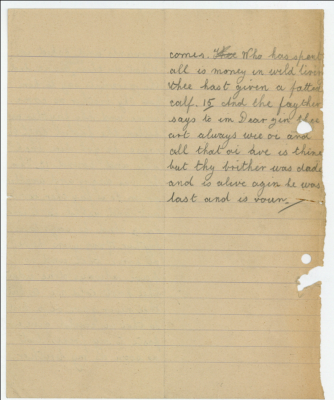 comes. Who has spent
all is money in wild livin
thee hast given a fatted
calf. 15 And the fayther
says to im Dear zin thee
art always wee oi and
all that oi ave is thine
but thy brither was dade
and is alive agen he was
lost and is voun.